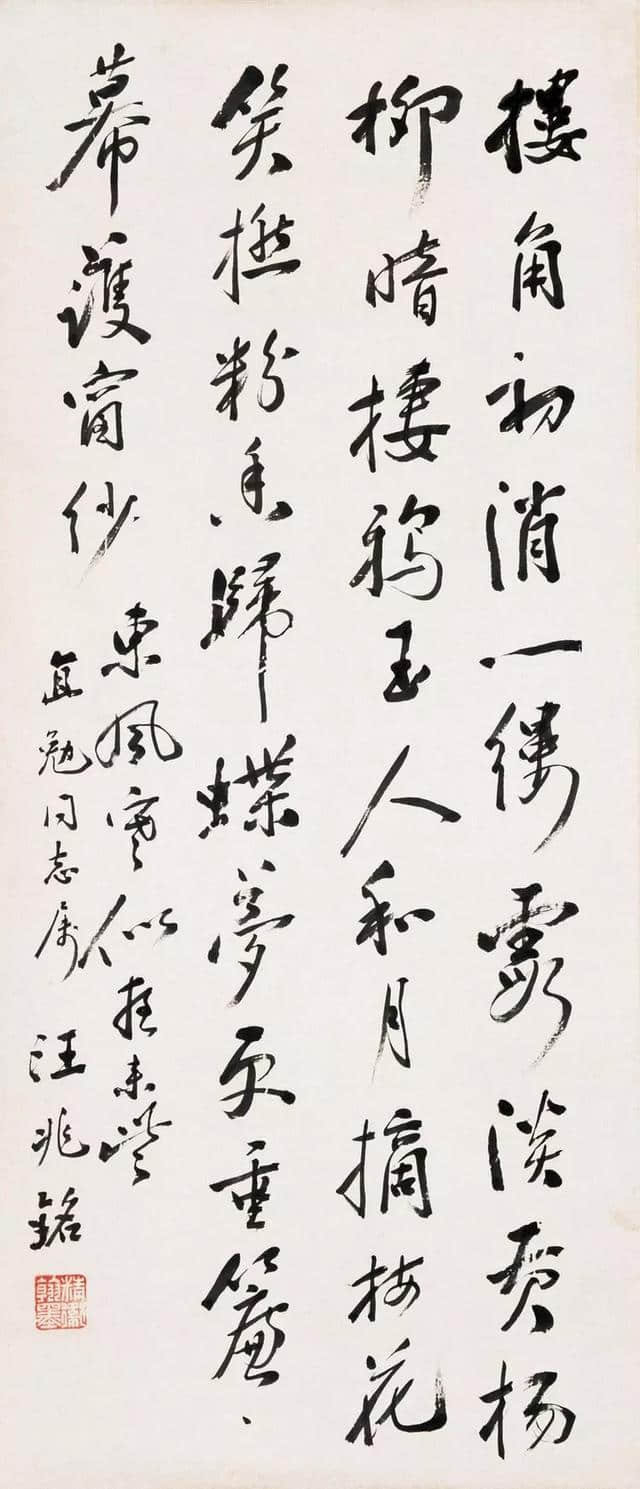 樓角初消一縷霞淡黃楊
柳暗棲鴉玉人和月摘梅花
笑撚粉香歸蝶夢更垂簾
幕護窗紗
東風寒似來些
直勉同志属 汪兆銘
精衛
翰墨